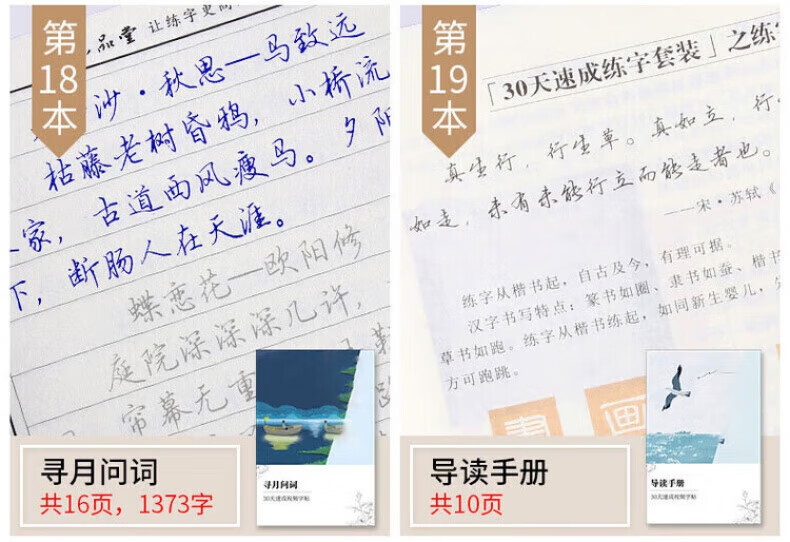 第
18
本
品堂 让练字更简
沙·秋思—马致远
枯藤老树昏鸦，小桥流
家，古道西风瘦马。夕阳
下，断肠人在天涯。
蝶恋花—欧阳修
庭院深深深几许，
帘幕无重
寻月问词
30天速成视频字帖
寻月问词
共16页，1373字
第
19
本
「30天速成练字套装」之练
真生行，行生草。真如立，行
如走，未有未能行立而能走者也。
——宋·苏轼《
练字从楷书起，自古及今，有理可据。
汉字书写特点：篆书如圈、隶书如蚕、楷书
草书如跑。练字从楷书练起，如同新生婴儿，
方可跑跳。
書画
导读手册
30天速成视频字帖
导读手册
共10页